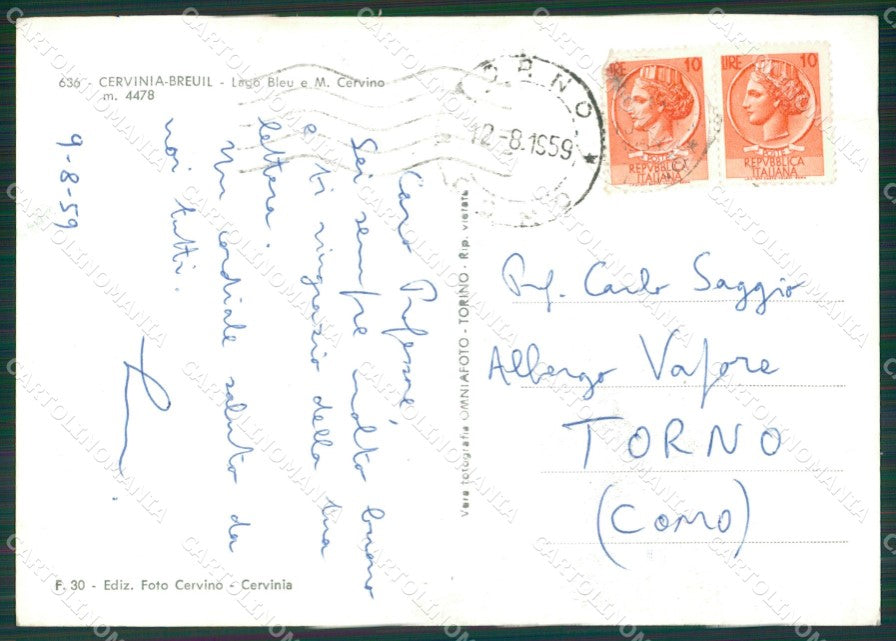 636 - CERVINIA-BREUIL - Lago Bleu e M. Cervino
m. 4478
9-8-59
Caro Professore,
Sei sempre molto buono
e ti ringrazio della tua
lettera.
Un cordiale saluto da
noi tutti.
F. 30 - Ediz. Foto Cervino - Cervinia
Vera fotografia OMNIAFOTO - TORINO - Rip. vietata
TORNO
12-8.1959
LIRE 10
POSTE
REPVBBLICA
ITALIANA
LIRE 10
POSTE
REPVBBLICA
ITALIANA
Prof. Carlo Saggio
Albergo Vapore
TORNO
(COMO)
CARTOLINOMANIA